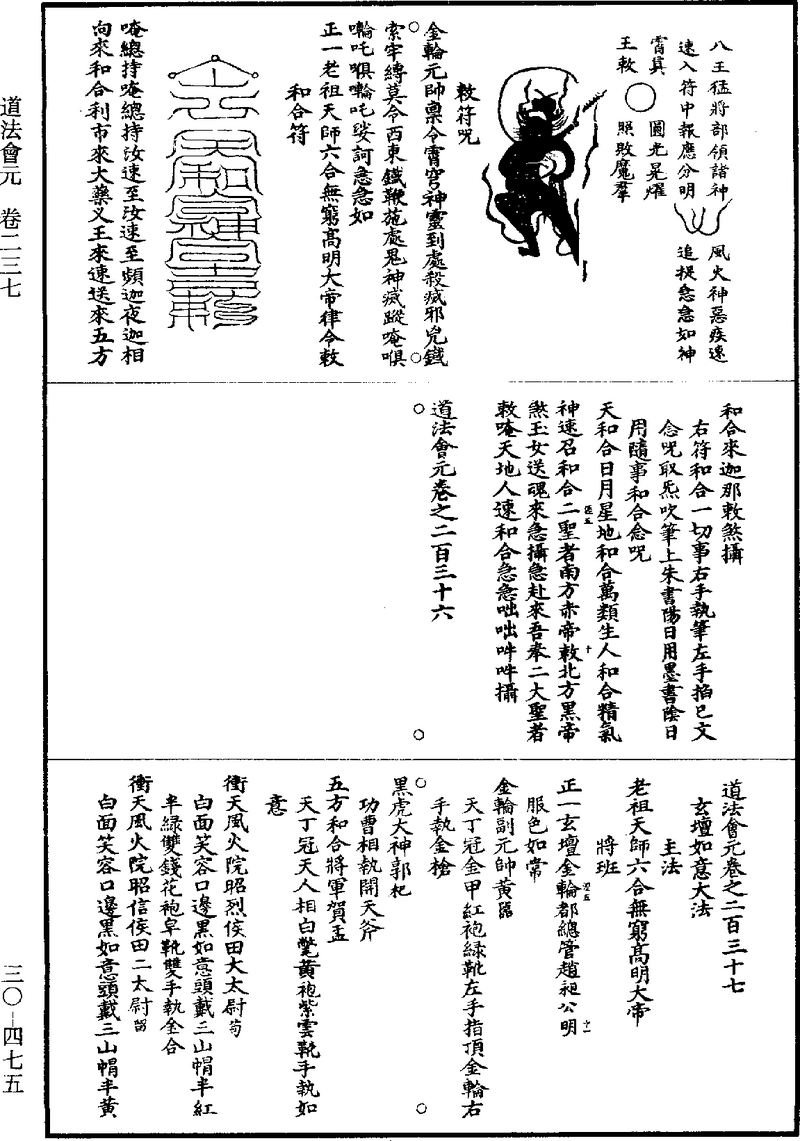 道法會元　卷二三七
三〇－四七五
八王猛將部領諸神　風火神惡疾速
速入符中報應分明　追捉急急如神
霄真　圓光晃耀
王敕　照敗魔羣
敕符呪
金輪元帥禀令霄穹神靈到處殺㓕邪兇鐵
索牢縛莫令西東鐵鞭施處鬼神㓕蹤唵㗾
㘕吒㗾㘕吒娑訶急急如
正一老祖天師六合無窮髙明大帝律令敕
和合符
唵總持唵總持汝速至汝速至頻迦夜迦相
向來和合利市來大藥义王來速送來五方
和合來迦那敕煞攝
右符和合一切事右手執筆左手掐巳文
念呪取炁吹筆上朱書陽日用墨書陰日
用隨事和合念呪
天和合日月星地和合萬類生人和合精氣
神速召和合二聖者南方赤帝敕北方黑帝
煞玉女送魂來急攝急赴來吾奉二大聖者
敕唵天地人速和合急急咄咄吽吽攝
道法會元卷之二百三十六
道法會元卷之二百三十七
玄壇如意大法
主法
老祖天師六合無窮髙明大帝
將班
正一玄壇金輪都總管趙昶公明
服色如常
金輪副元帥黃
天丁冠金甲紅袍綠靴左手指頂金輪右
手執金槍
黑虎大神郭杞
功曹相執開天斧
五方和合將軍賀盂
天丁冠天人相白㲠黃袍紫雲靴手執如
意
衝天風火院昭烈侯田大太尉苟
白面笑容口邊黑如意頭戴三山帽半紅
半綠雙錢花袍皁靴雙手執金合
衝天風火院昭信侯田二太尉留
白面笑容口邊黑如意頭戴三山帽半黃